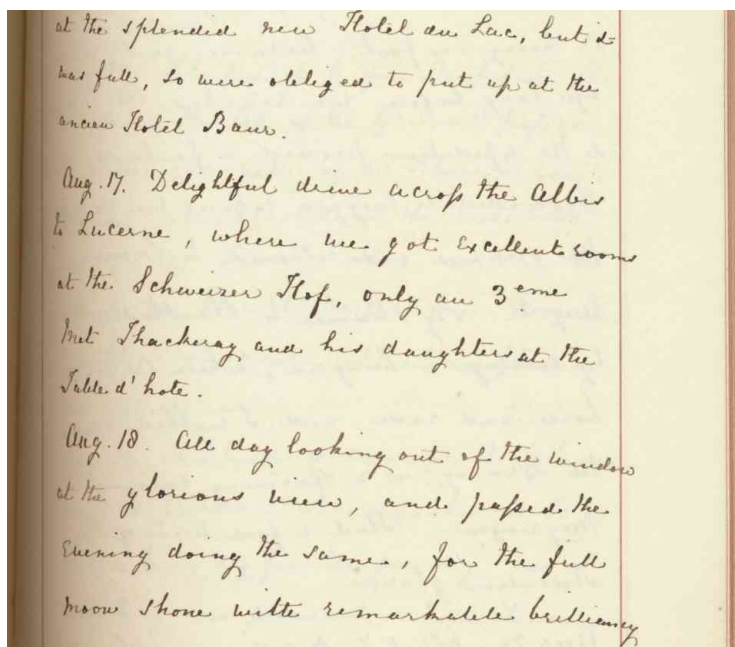 at the splendid new Hotel du Lac, but it
was full, so were obliged to put up at the
ancien Hotel Baur.
Aug. 17. Delightful drive across the Albis
to Lucerne, where we got excellent rooms
at the Schweizer Hof, only au 3eme
Met Thackeray and his daughters at the
Table d'hote.
Aug. 18. All day looking out of the window
at the glorious view, and passed the
evening doing the same, for the full
moon shone with remarkable brilliancy